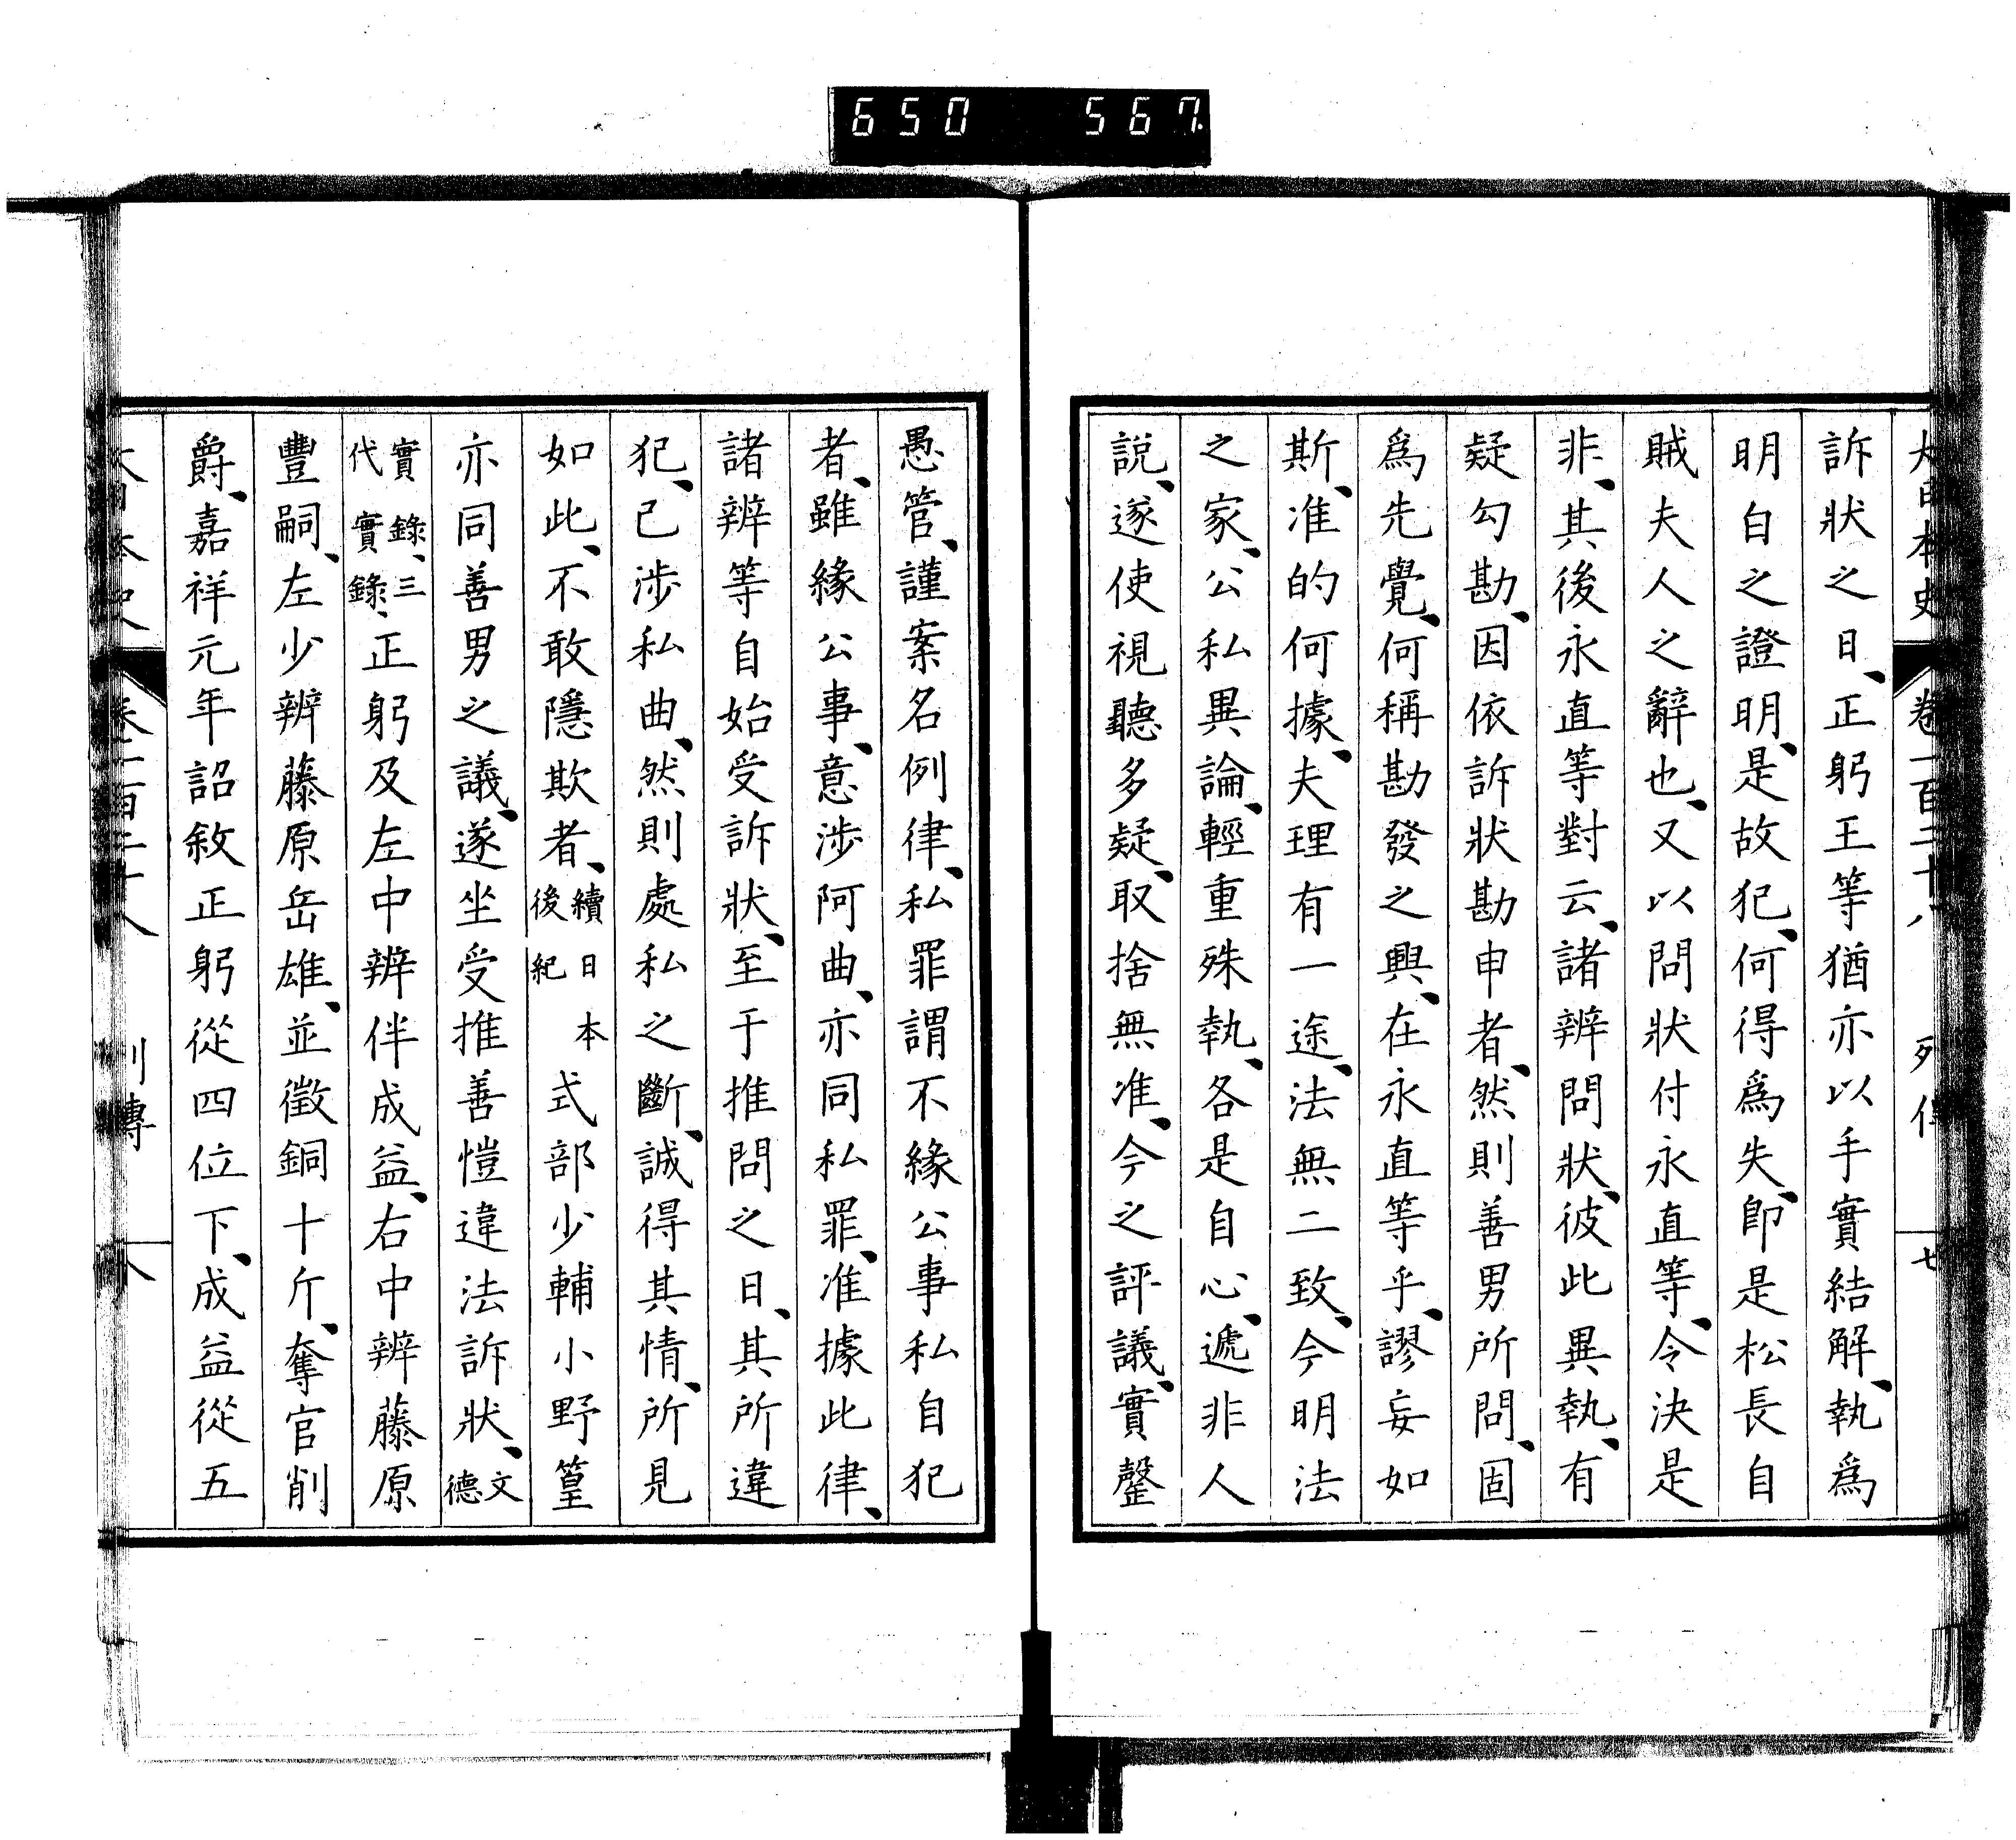 650 567
大日本史 卷一百二十八 列傳 七
訴狀之日、正躬王等猶亦以手實結解、執爲
明白之證明、是故犯、何得爲失、卽是松長自
賊夫人之辭也、又以問狀付永直等、令決是
非、其後永直等對云、諸辨問狀、彼此異執、有
疑勾勘、因依訴狀勘申者、然則善男所問、固
爲先覺、何稱勘發之興、在永直等乎、謬妄如
斯、准的何據、夫理有一途、法無二致、今明法
之家、公私異論、輕重殊執、各是自心、遞非人
說、遂使視聽多疑、取捨無准、今之評議、實罄
愚管、謹案名例律、私罪謂不緣公事私自犯
者、雖緣公事、意涉阿曲、亦同私罪、准據此律、
諸辨等自始受訴狀、至于推問之日、其所違
犯、已涉私曲、然則處私之斷、誠得其情、所見
如此、不敢隱欺者、續日本後紀 式部少輔小野篁
亦同善男之議、遂坐受推善愷違法訴狀、文德
實錄、三代實錄、正躬及左中辨伴成益、右中辨藤原
豐嗣、左少辨藤原岳雄、並徵銅十斤、奪官削
爵、嘉祥元年詔敘正躬從四位下、成益從五
大日本史 卷一百二十八 列傳 八